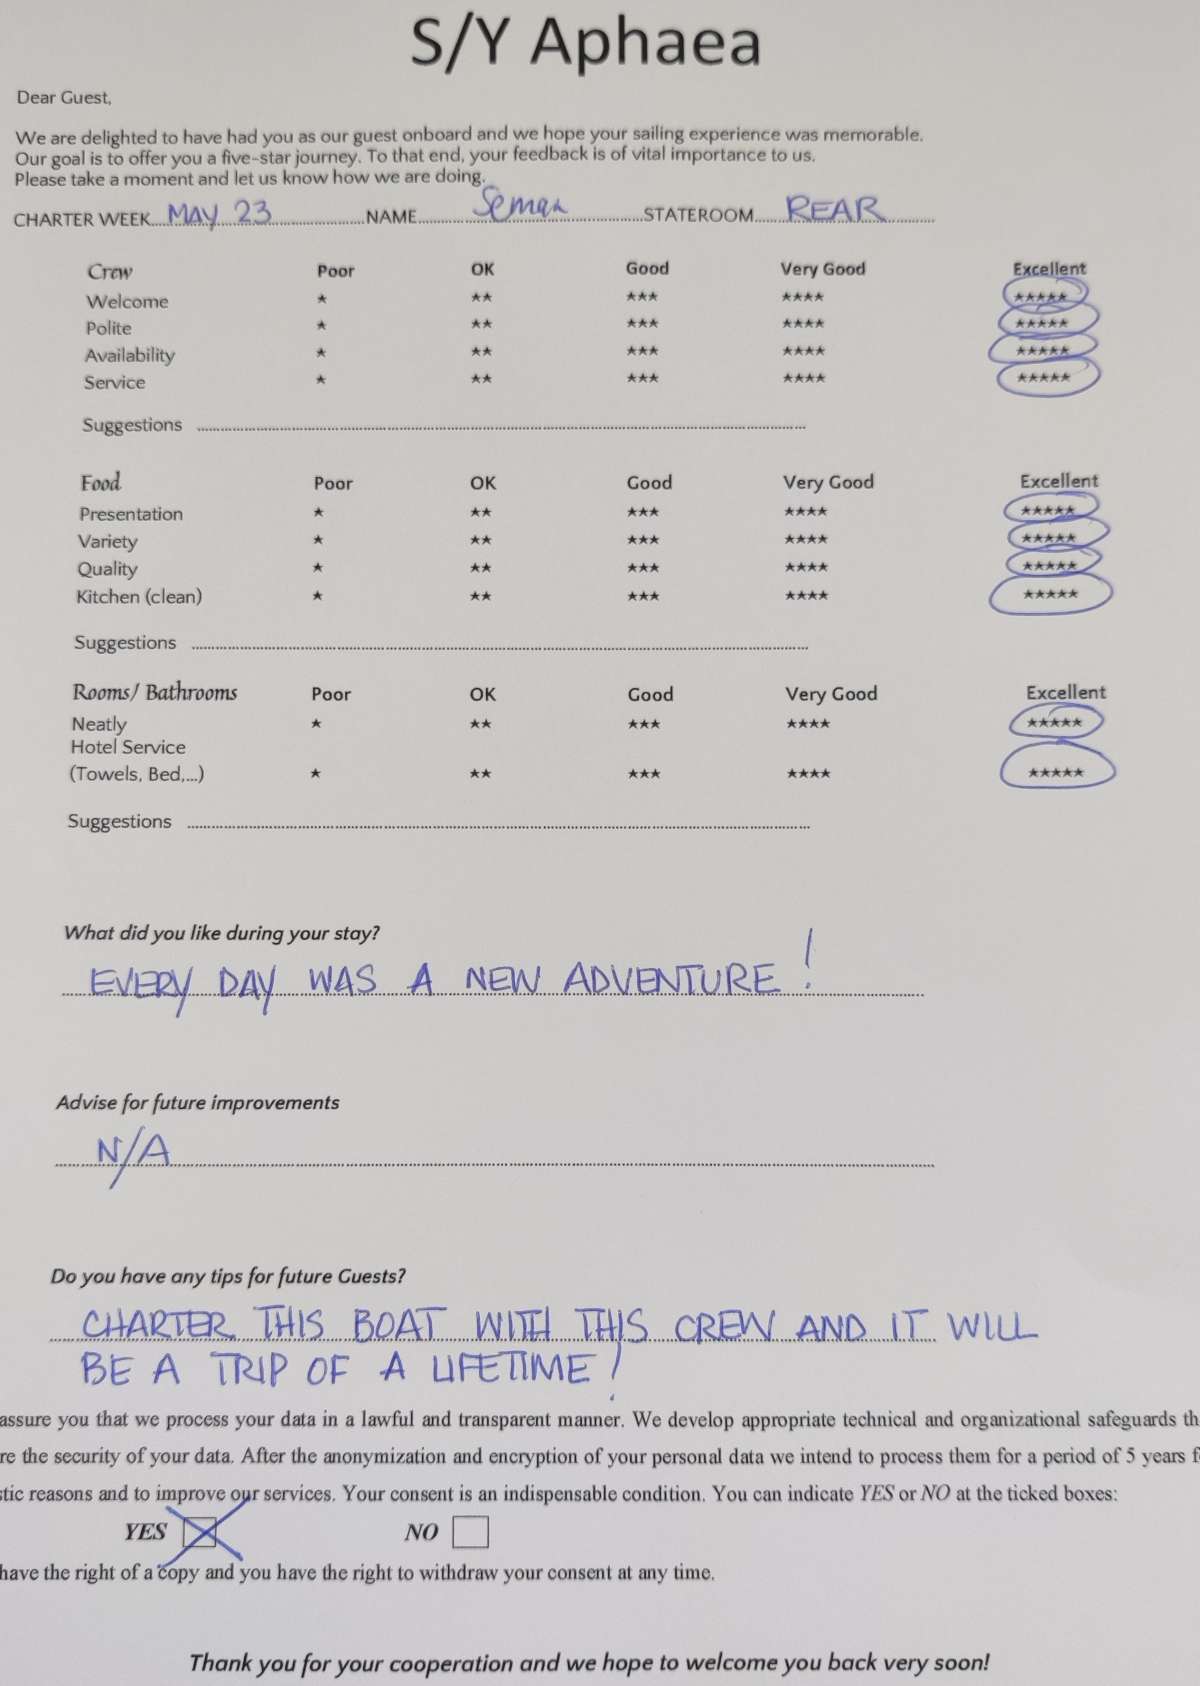 S/Y Aphaea
Dear Guest,
We are delighted to have had you as our guest onboard and we hope your sailing experience was memorable.
Our goal is to offer you a five-star journey. To that end, your feedback is of vital importance to us.
Please take a moment and let us know how we are doing.
CHARTER WEEK MAY 23 NAME Seman STATEROOM REAR
Crew Poor OK Good Very Good Excellent
Welcome ★ ★★ ★★★ ★★★★ ★★★★★
Polite ★ ★★ ★★★ ★★★★ ★★★★★
Availability ★ ★★ ★★★ ★★★★ ★★★★★
Service ★ ★★ ★★★ ★★★★ ★★★★★
Suggestions
Food Poor OK Good Very Good Excellent
Presentation ★ ★★ ★★★ ★★★★ ★★★★★
Variety ★ ★★ ★★★ ★★★★ ★★★★★
Quality ★ ★★ ★★★ ★★★★ ★★★★★
Kitchen (clean) ★ ★★ ★★★ ★★★★ ★★★★★
Suggestions
Rooms/ Bathrooms Poor OK Good Very Good Excellent
Neatly ★ ★★ ★★★ ★★★★ ★★★★★
Hotel Service
(Towels, Bed,...) ★ ★★ ★★★ ★★★★ ★★★★★
Suggestions
What did you like during your stay?
EVERY DAY WAS A NEW ADVENTURE!
Advise for future improvements
N/A
Do you have any tips for future Guests?
CHARTER THIS BOAT WITH THIS CREW AND IT WILL
BE A TRIP OF A LIFETIME!
assure you that we process your data in a lawful and transparent manner. We develop appropriate technical and organizational safeguards
the security of your data. After the anonymization and encryption of your personal data we intend to process them for a period of 5 years
reasons and to improve our services. Your consent is an indispensable condition. You can indicate YES or NO at the ticked boxes:
YES NO
have the right of a copy and you have the right to withdraw your consent at any time.
Thank you for your cooperation and we hope to welcome you back very soon!